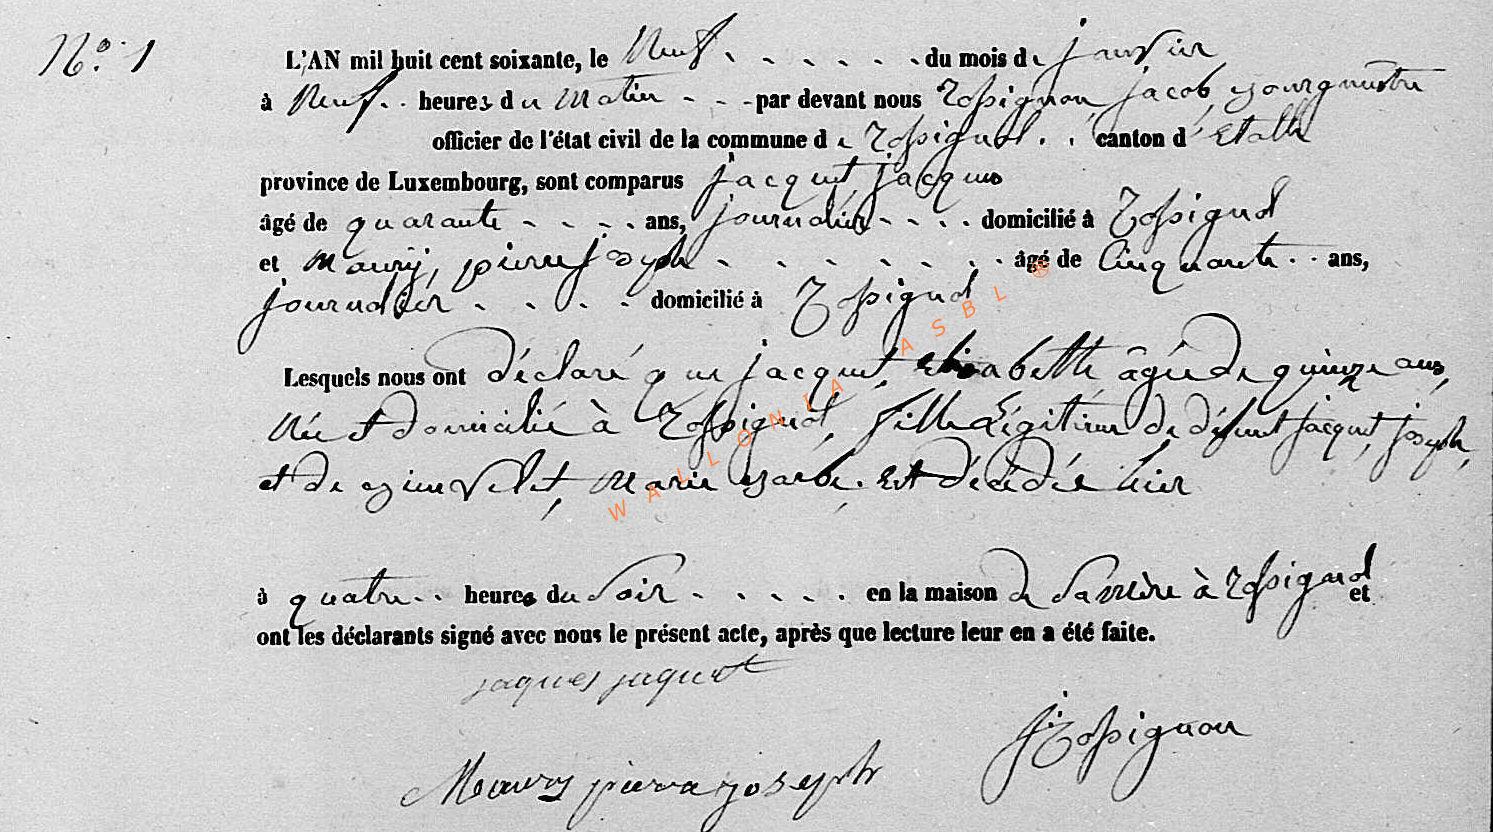 N° 1
L'AN mil huit cent soixante, le Neuf du mois de janvier
à Neuf heures du Matin par devant nous Rossignon jacob, Bourgmestre
officier de l'état civil de la commune de Rossignol canton d'Etalle
province de Luxembourg, sont comparus jacquet, jacques
âgé de quarante ans, journalier domicilié à Rossignol
et Maury, pierre joseph âgé de Cinquante ans,
journalier domicilié à Rossignol
Lesquels nous ont déclaré que jacquet, Elisabette âgée de quinze ans,
Née et domicilié à Rossignol, fille Légitime de défunt jacquet, joseph,
et de Bienvelet, Marie Barbe. Est décédée hier
à quatre heures du Soir en la maison de Sa mère à Rossignol et
ont les déclarants signé avec nous le présent acte, après que lecture leur en a été faite.
jaques jaquet
JRossignon
Maury pierre joseph
WALLONIA ASBL ©